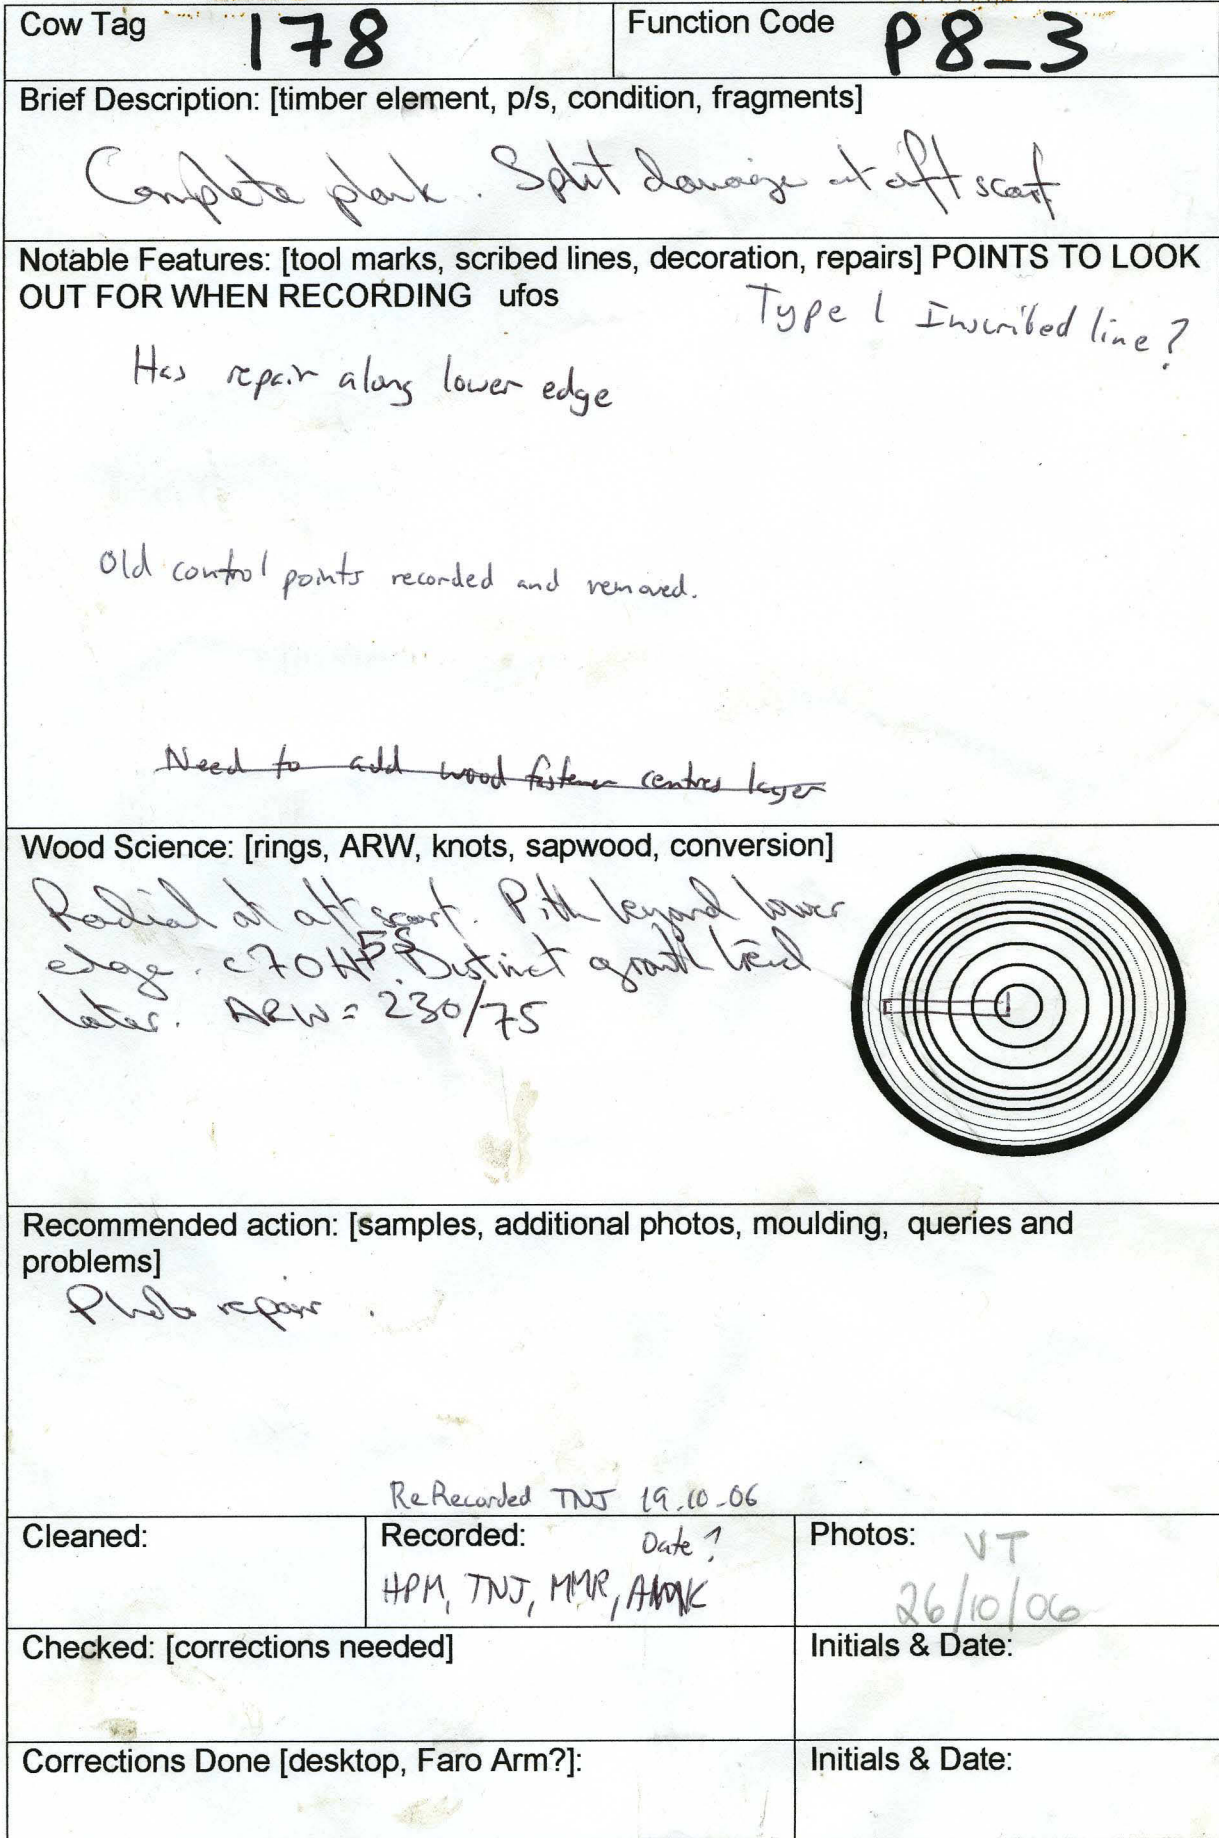 Cow Tag 178 Function Code P8_3
Brief Description: [timber element, p/s, condition, fragments]
Complete plank. Split damage at aft scarf
Notable Features: [tool marks, scribed lines, decoration, repairs] POINTS TO LOOK
OUT FOR WHEN RECORDING ufos
Type 1 Inscribed line?
Has repair along lower edge
Old control points recorded and removed.
Need to add wood fastener centres layer
Wood Science: [rings, ARW, knots, sapwood, conversion]
Radial at aft scarf. Pith beyond lower
edge. c70H 5S Distinct growth trend
later. ARW = 230/75
Recommended action: [samples, additional photos, moulding, queries and
problems]
Photo repair.
ReRecorded TNJ 19.10.06
Cleaned: Recorded: Date? Photos: VT
HPM, TNJ, MMR, 26/10/06
Checked: [corrections needed] Initials & Date:
Corrections Done [desktop, Faro Arm?]: Initials & Date: